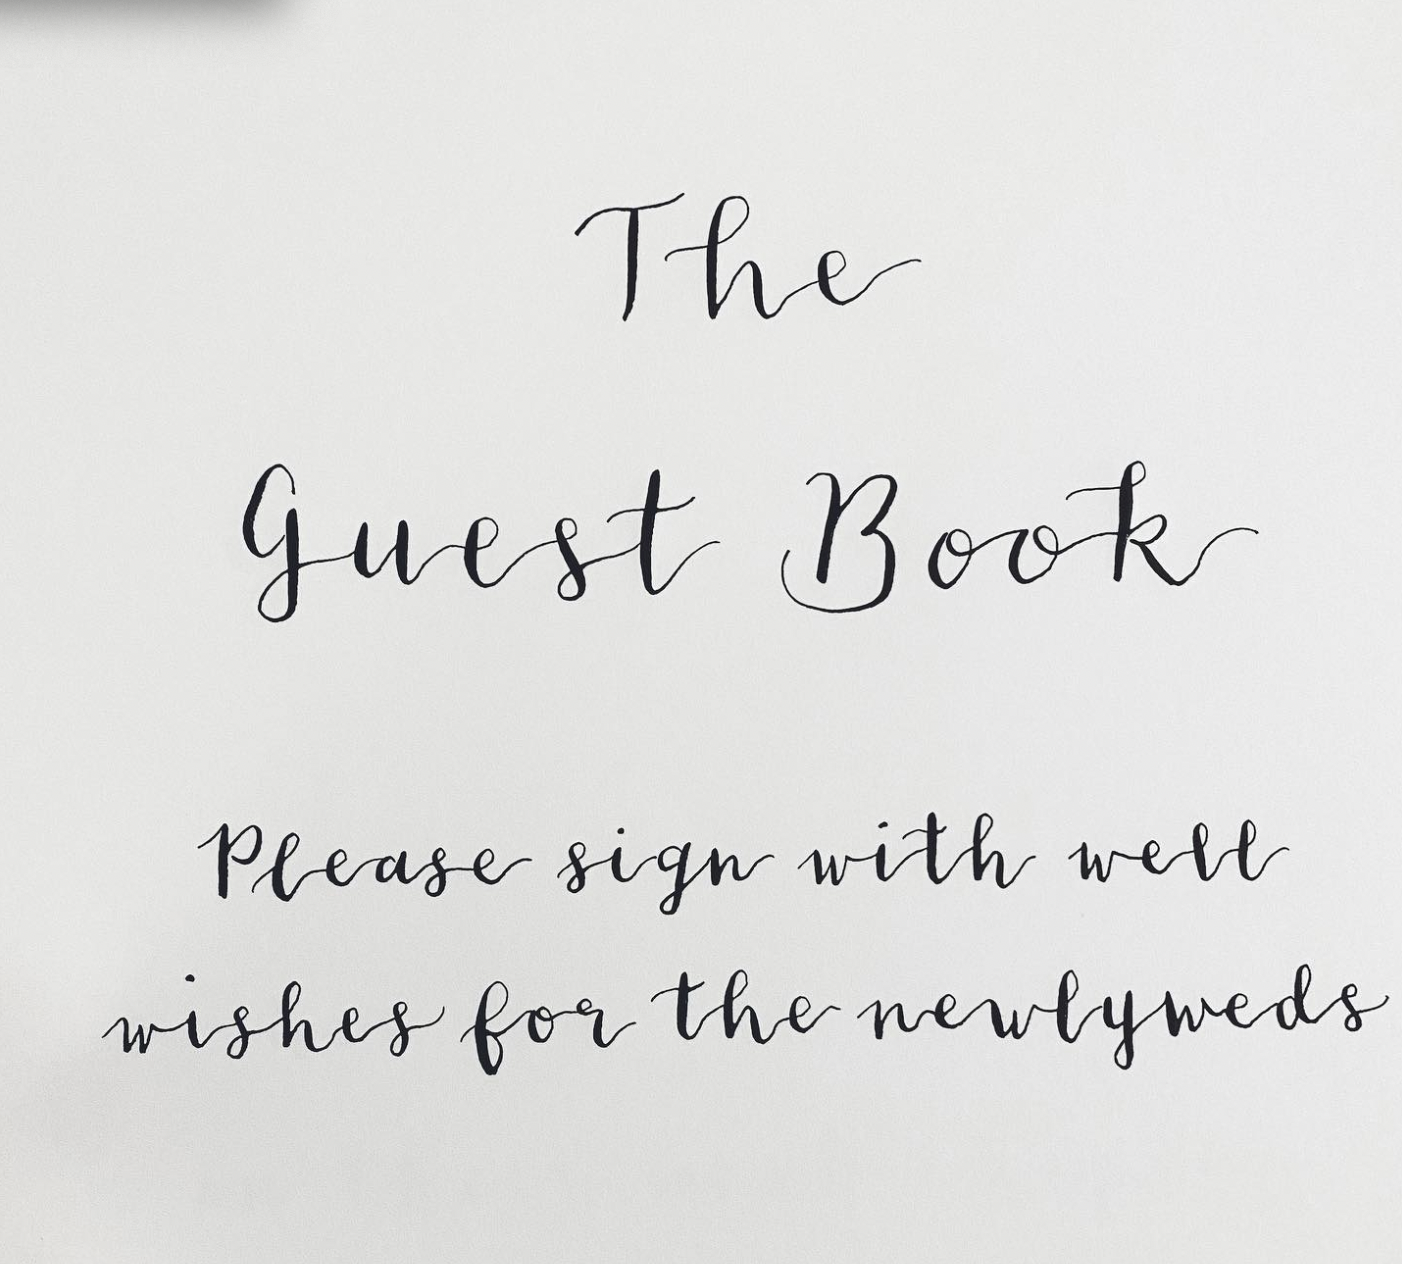 The
Guest Book
Please sign with well
wishes for the newlyweds